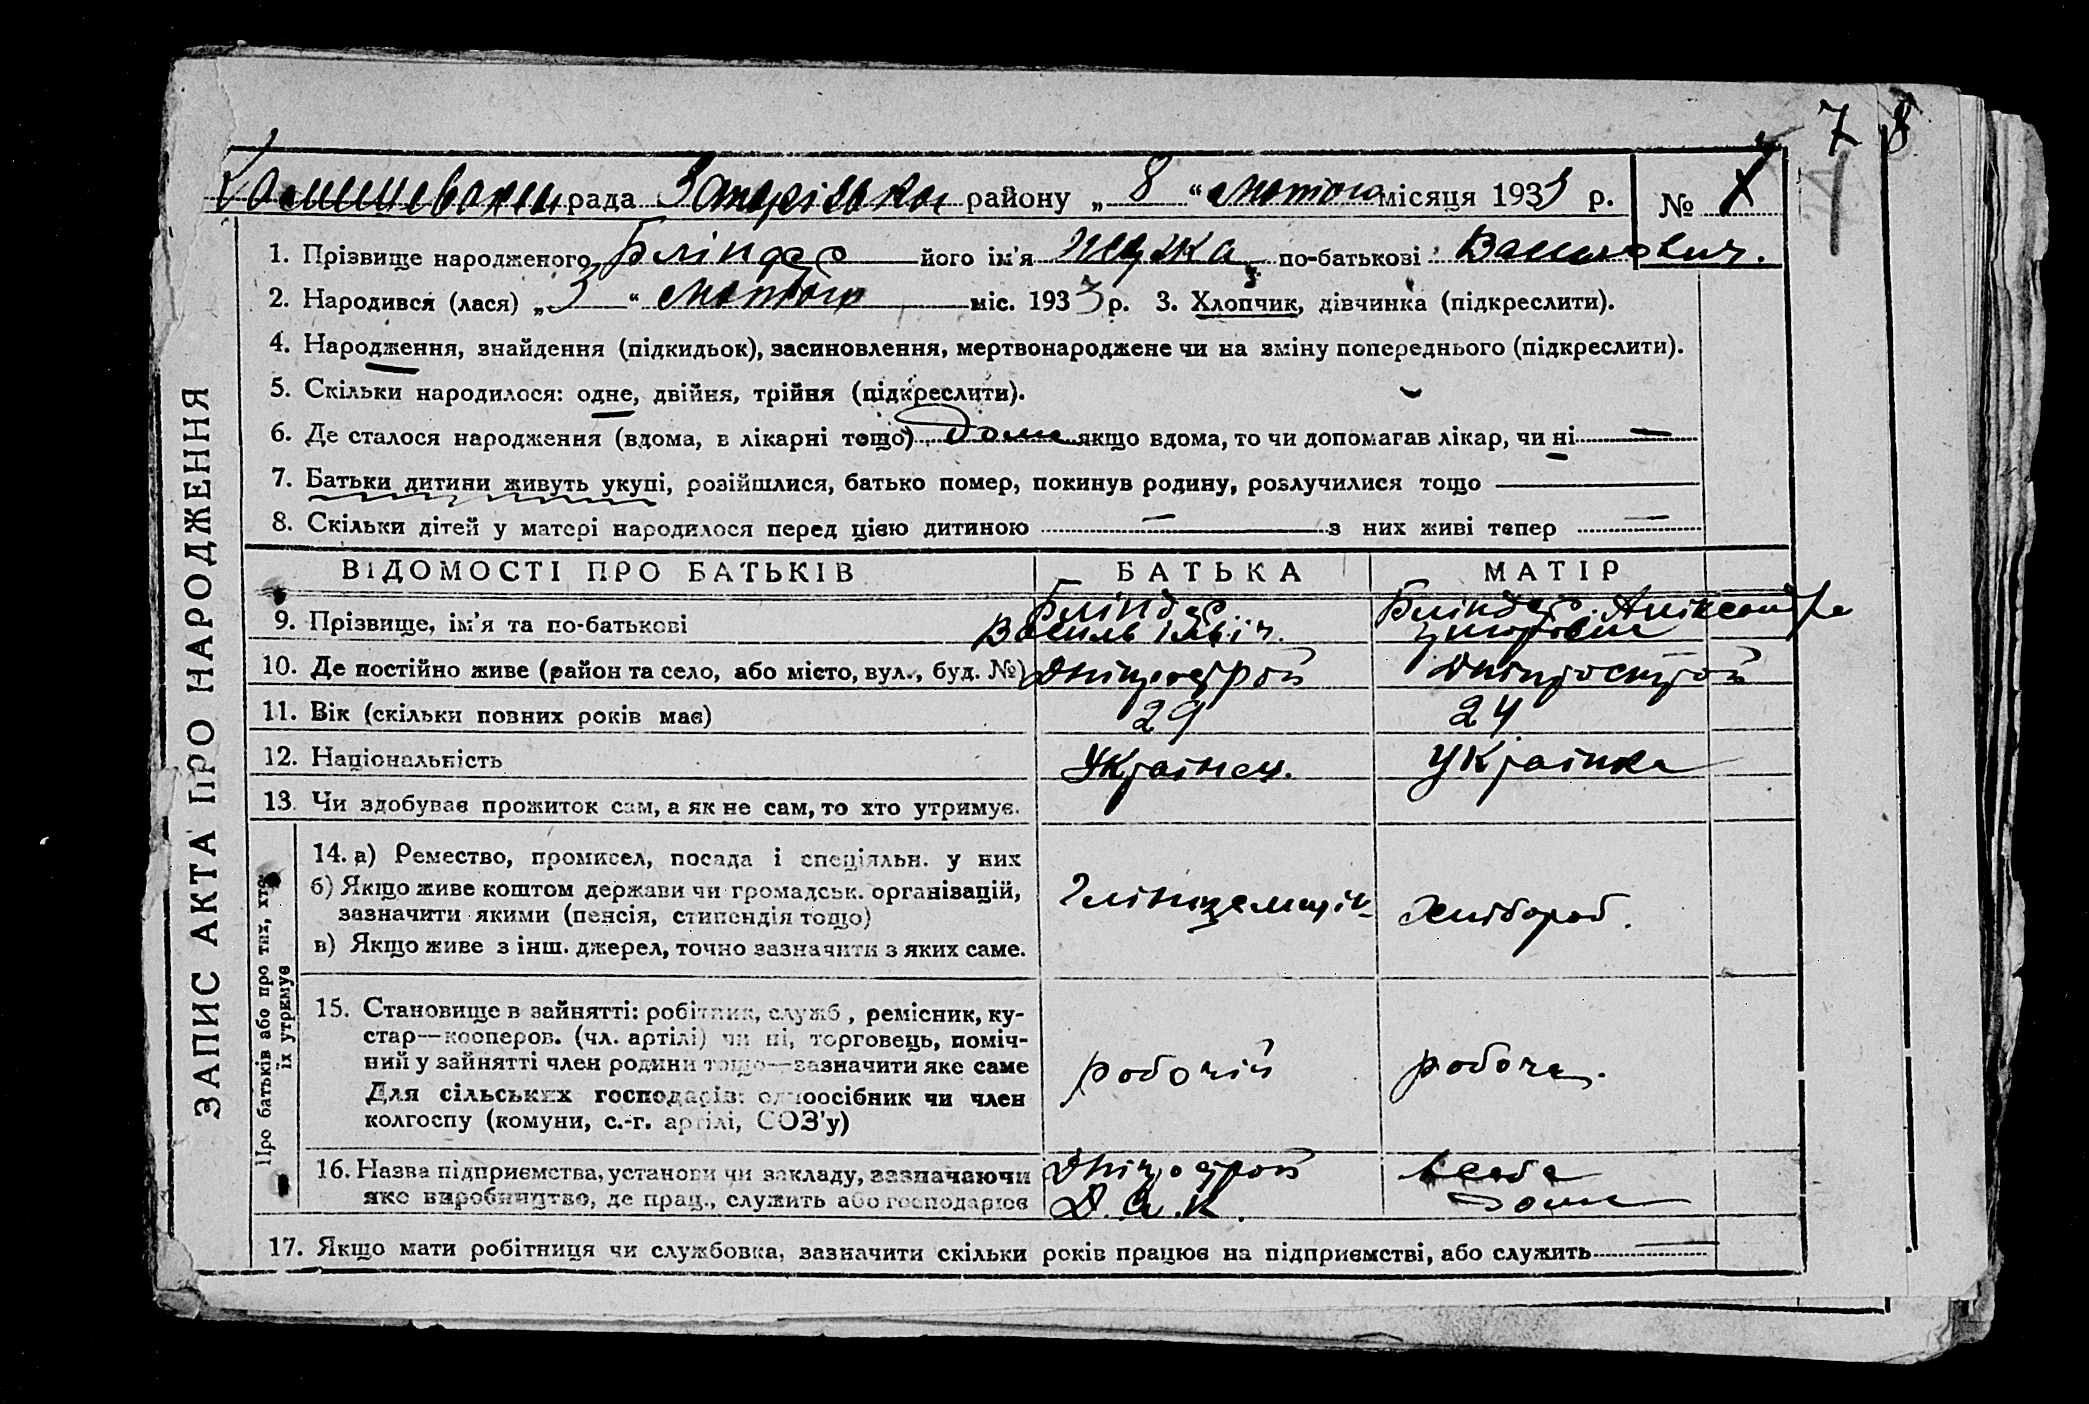 7 8
рада района району „ 8 “ лютого місяця 1933 р. №
1. Прізвище народженого його ім'я по-батькові Васильович.
2. Народився (лася) „ 3 “ лютого міс. 1933 р. 3. Хлопчик, дівчинка (підкреслити).
4. Народження, знайдення (підкидьок), засиновлення, мертвонароджене чи на зміну попереднього (підкреслити).
5. Скільки народилося: одне, двійня, трійня (підкреслити).
6. Де сталося народження (вдома, в лікарні тощо) дома якщо вдома, то чи допомагав лікар, чи ні —
7. Батьки дитини живуть укупі, розійшлися, батько помер, покинув родину, розлучилися тощо
8. Скільки дітей у матері народилося перед цією дитиною — з них живі тепер —
ВІДОМОСТІ ПРО БАТЬКІВ БАТЬКА МАТІР
9. Прізвище, ім'я та по-батькові Василь Ілвіч.
10. Де постійно живе (район та село, або місто, вул., буд. №) Дніпрострой Дніпрострой
11. Вік (скільки повних років має) 29 24
12. Національність Українец. Українка
13. Чи здобуває прожиток сам, а як не сам, то хто утримує.
ЗАПИС АКТА ПРО НАРОДЖЕННЯ
Про батьків або про тих, хто
їх утримує
14. а) Ремество, промисел, посада і спеціяльн. у них
б) Якщо живе коштом держави чи громадськ. організацій,
зазначити якими (пенсія, стипендія тощо) Хлібороб.
в) Якщо живе з інш. джерел, точно зазначити з яких саме.
15. Становище в зайнятті: робітник, служб., ремісник, ку-
стар—кооперов. (чл. артілі) чи ні, торговець, поміч-
ний у зайнятті член родини тощо—зазначити яке саме робочій робоча.
Для сільських господарів: одноосібник чи член
колгоспу (комуни, с.-г. артілі, СОЗ'у)
16. Назва підприємства, установи чи закладу, зазначаючи Дніпрострой
яке виробництво, де прац., служить або господарює дома
17. Якщо мати робітниця чи службовка, зазначити скільки років працює на підприємстві, або служить —